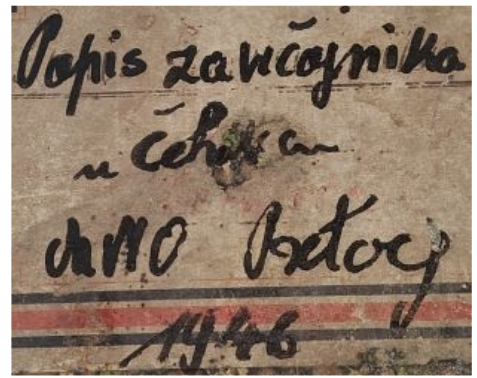 Popis zavičajnika
u
MNO Prelog
1946